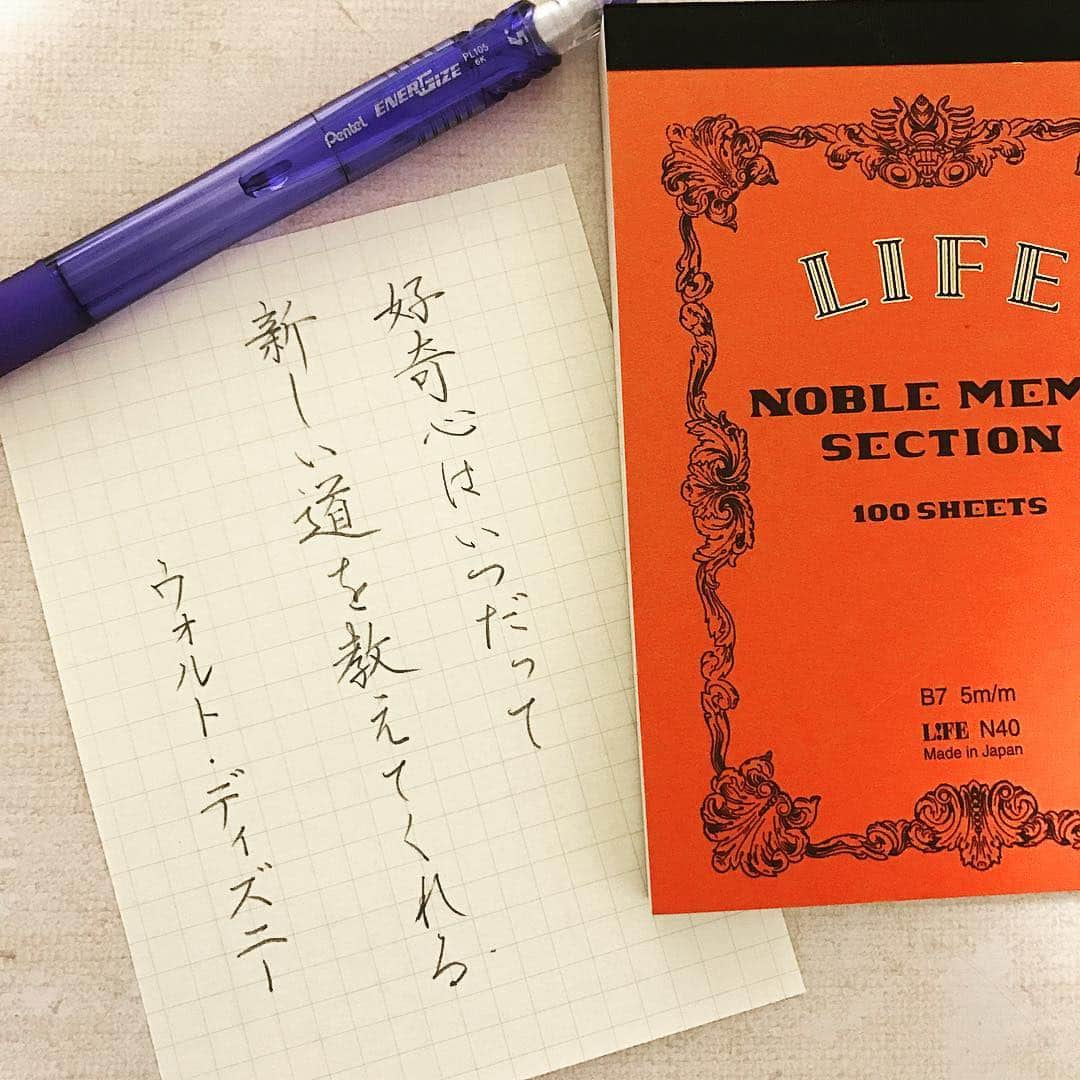 好奇心はいつだって
新しい道を教えてくれる
ウォルト・ディズニー
Pentel ENERGIZE PL105
6K
5
LIFE
NOBLE MEM
SECTION
100 SHEETS
B7 5m/m
L!FE N40
Made in Japan